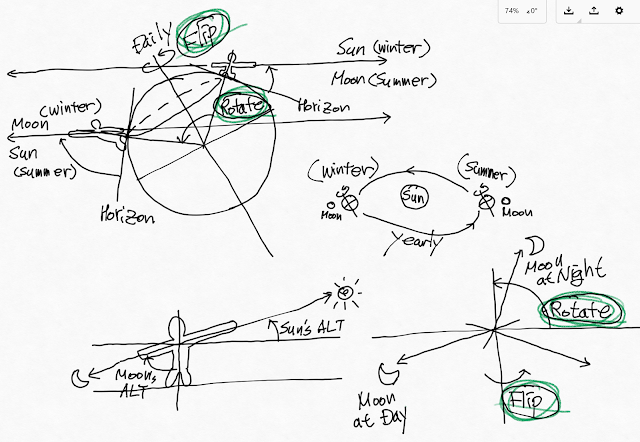 74%
0°
Daily
Flip
Sun (winter)
Moon (Summer)
Rotate
Horizon
(winter)
Moon
Sun
(summer)
Horizon
(winter)
(Summer)
Sun
Moon
Moon
Yearly
Moon
at Night
Rotate
Sun's ALT
Moon's
ALT
Moon
at Day
Flip